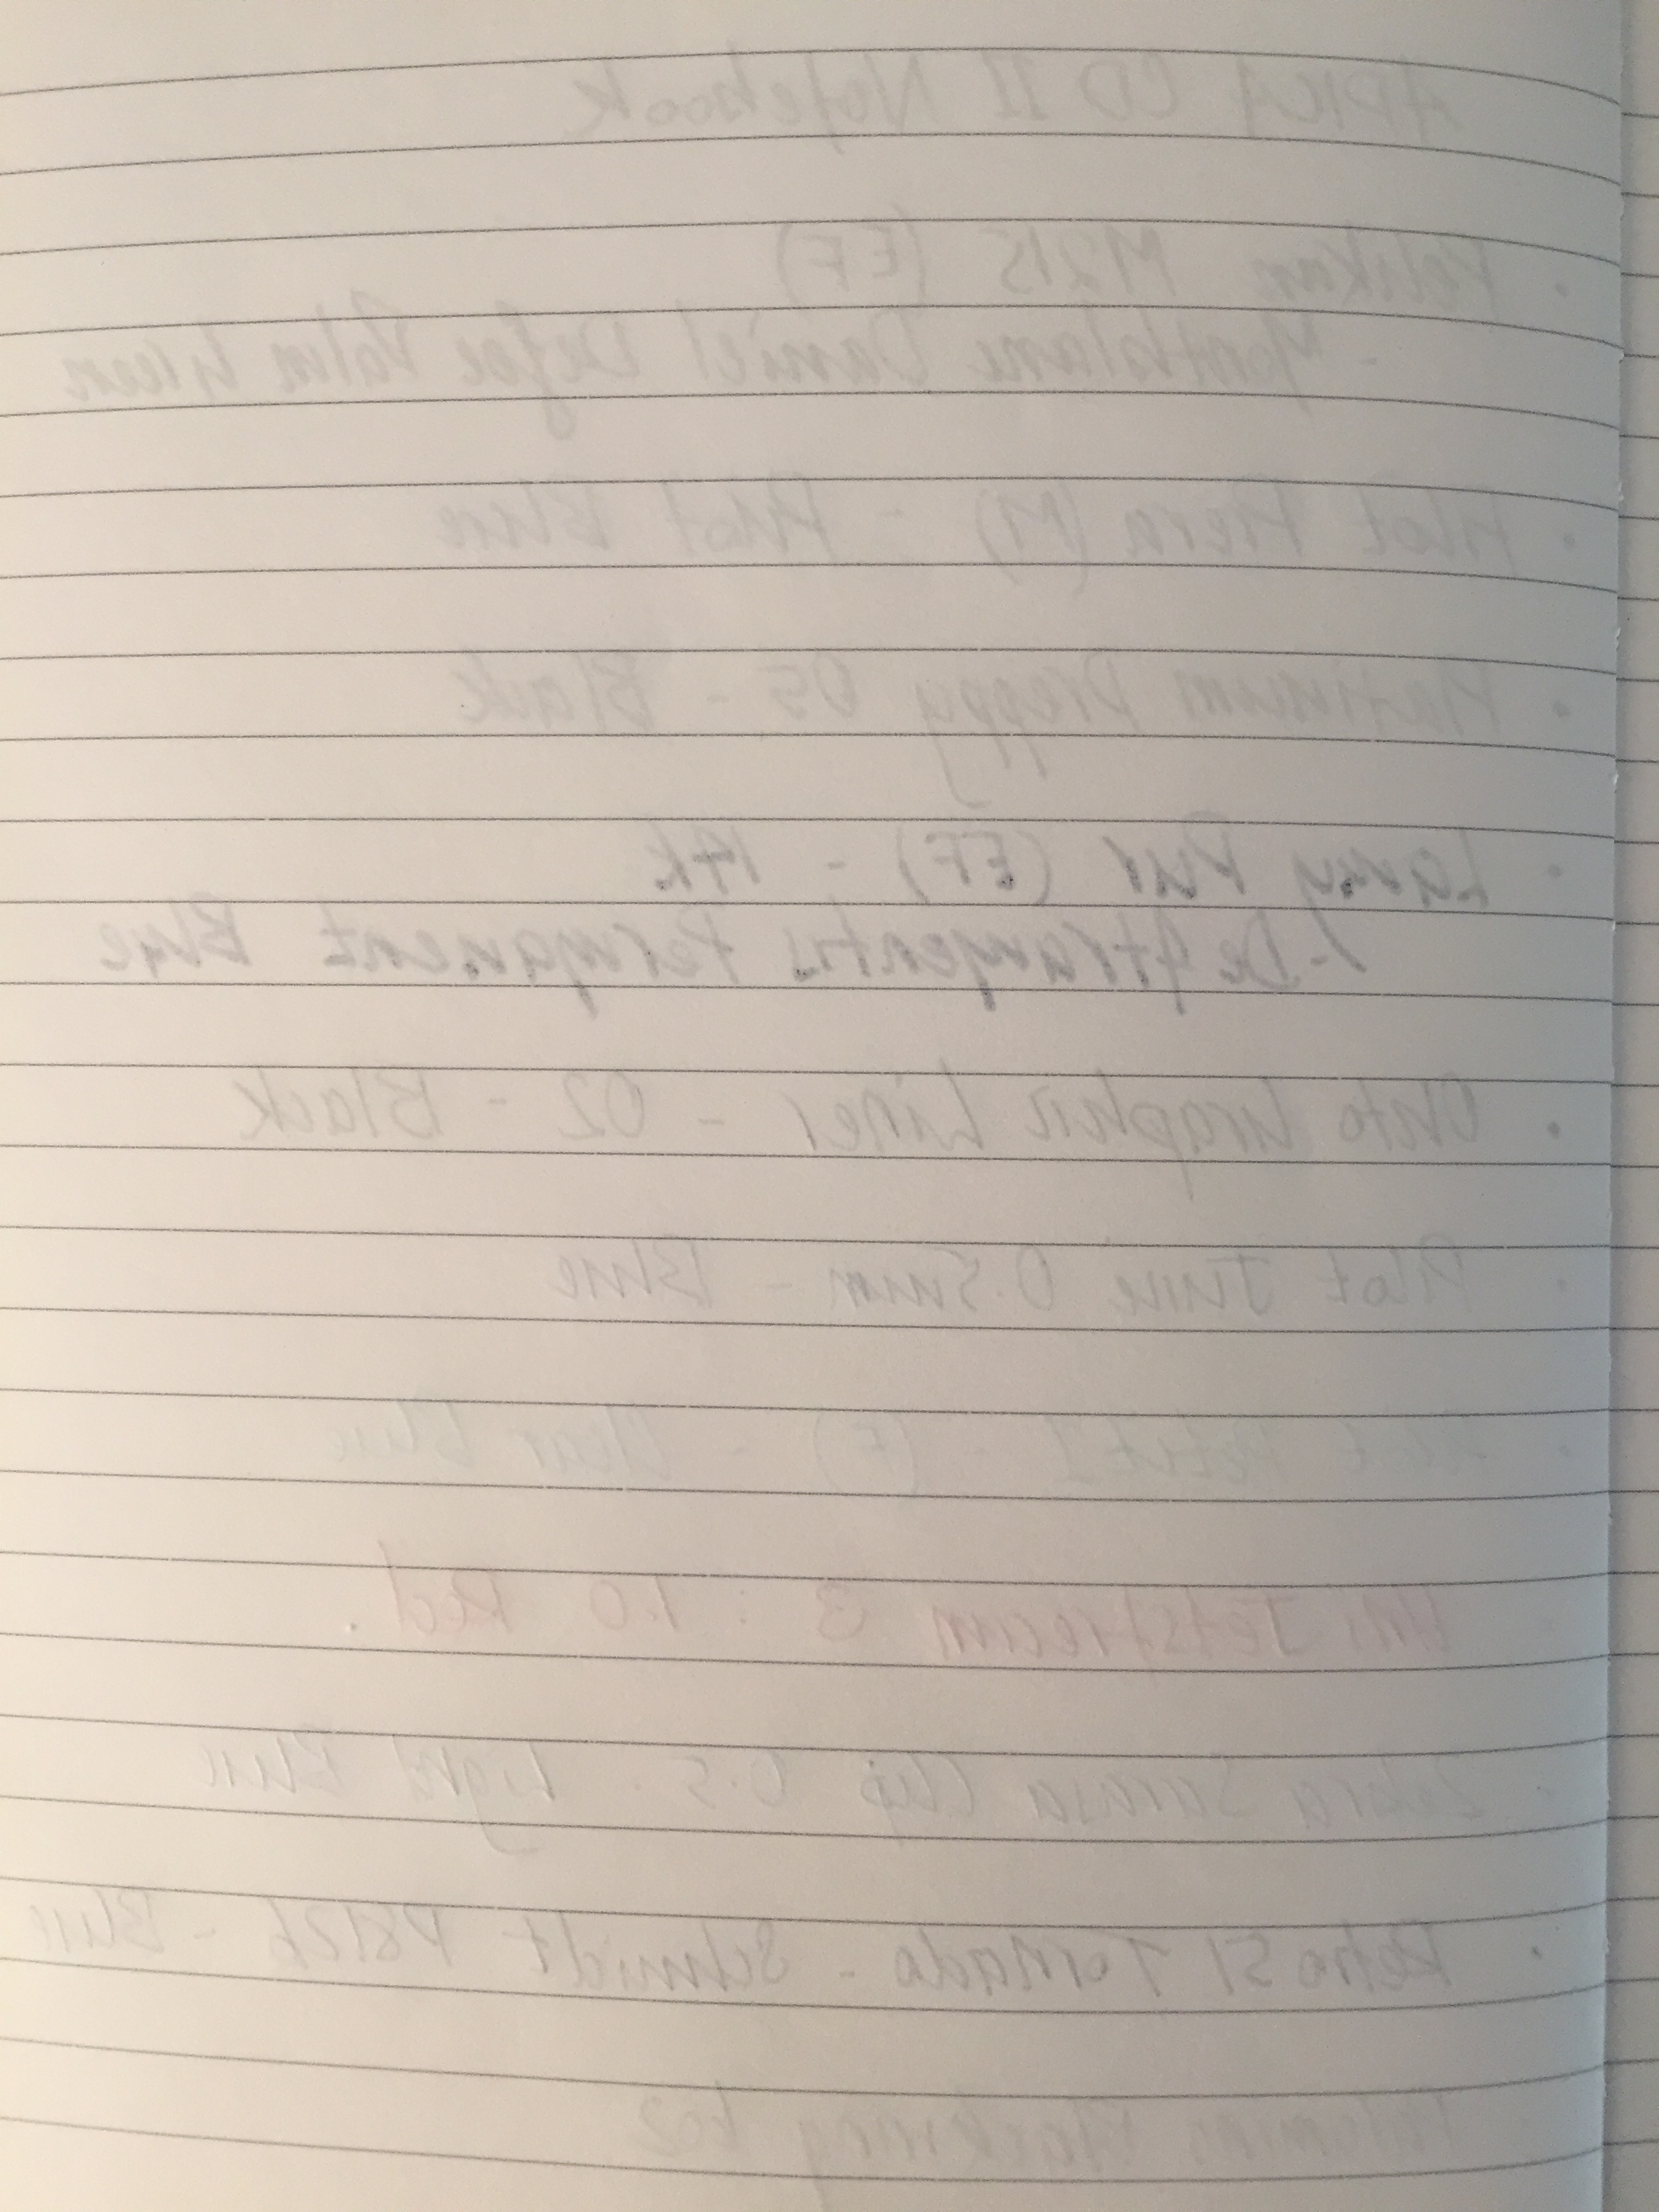 APICA CD II Notebook
· Pelikan M215 (EF)
- Montblanc Daniel Defoe Palm Green
· Pilot Prera (M) - Pilot Blue
· Platinum Preppy 05 - Black
· Lamy Pur (EF) - 14k
- De Atramentis Permanent Blue
· Ohto Graphic Liner - 02 - Black
· Pilot Juice 0.5mm - Blue
· Pilot Petit 1 - (F) - Clear Blue
Uni Jetstream 3 : 1.0 Red.
· Zebra Sarasa Clip 0.5 · Light Blue
· Retro 51 Tornado - Schmidt P8126 - Blue
· Palomino Blackwing 602